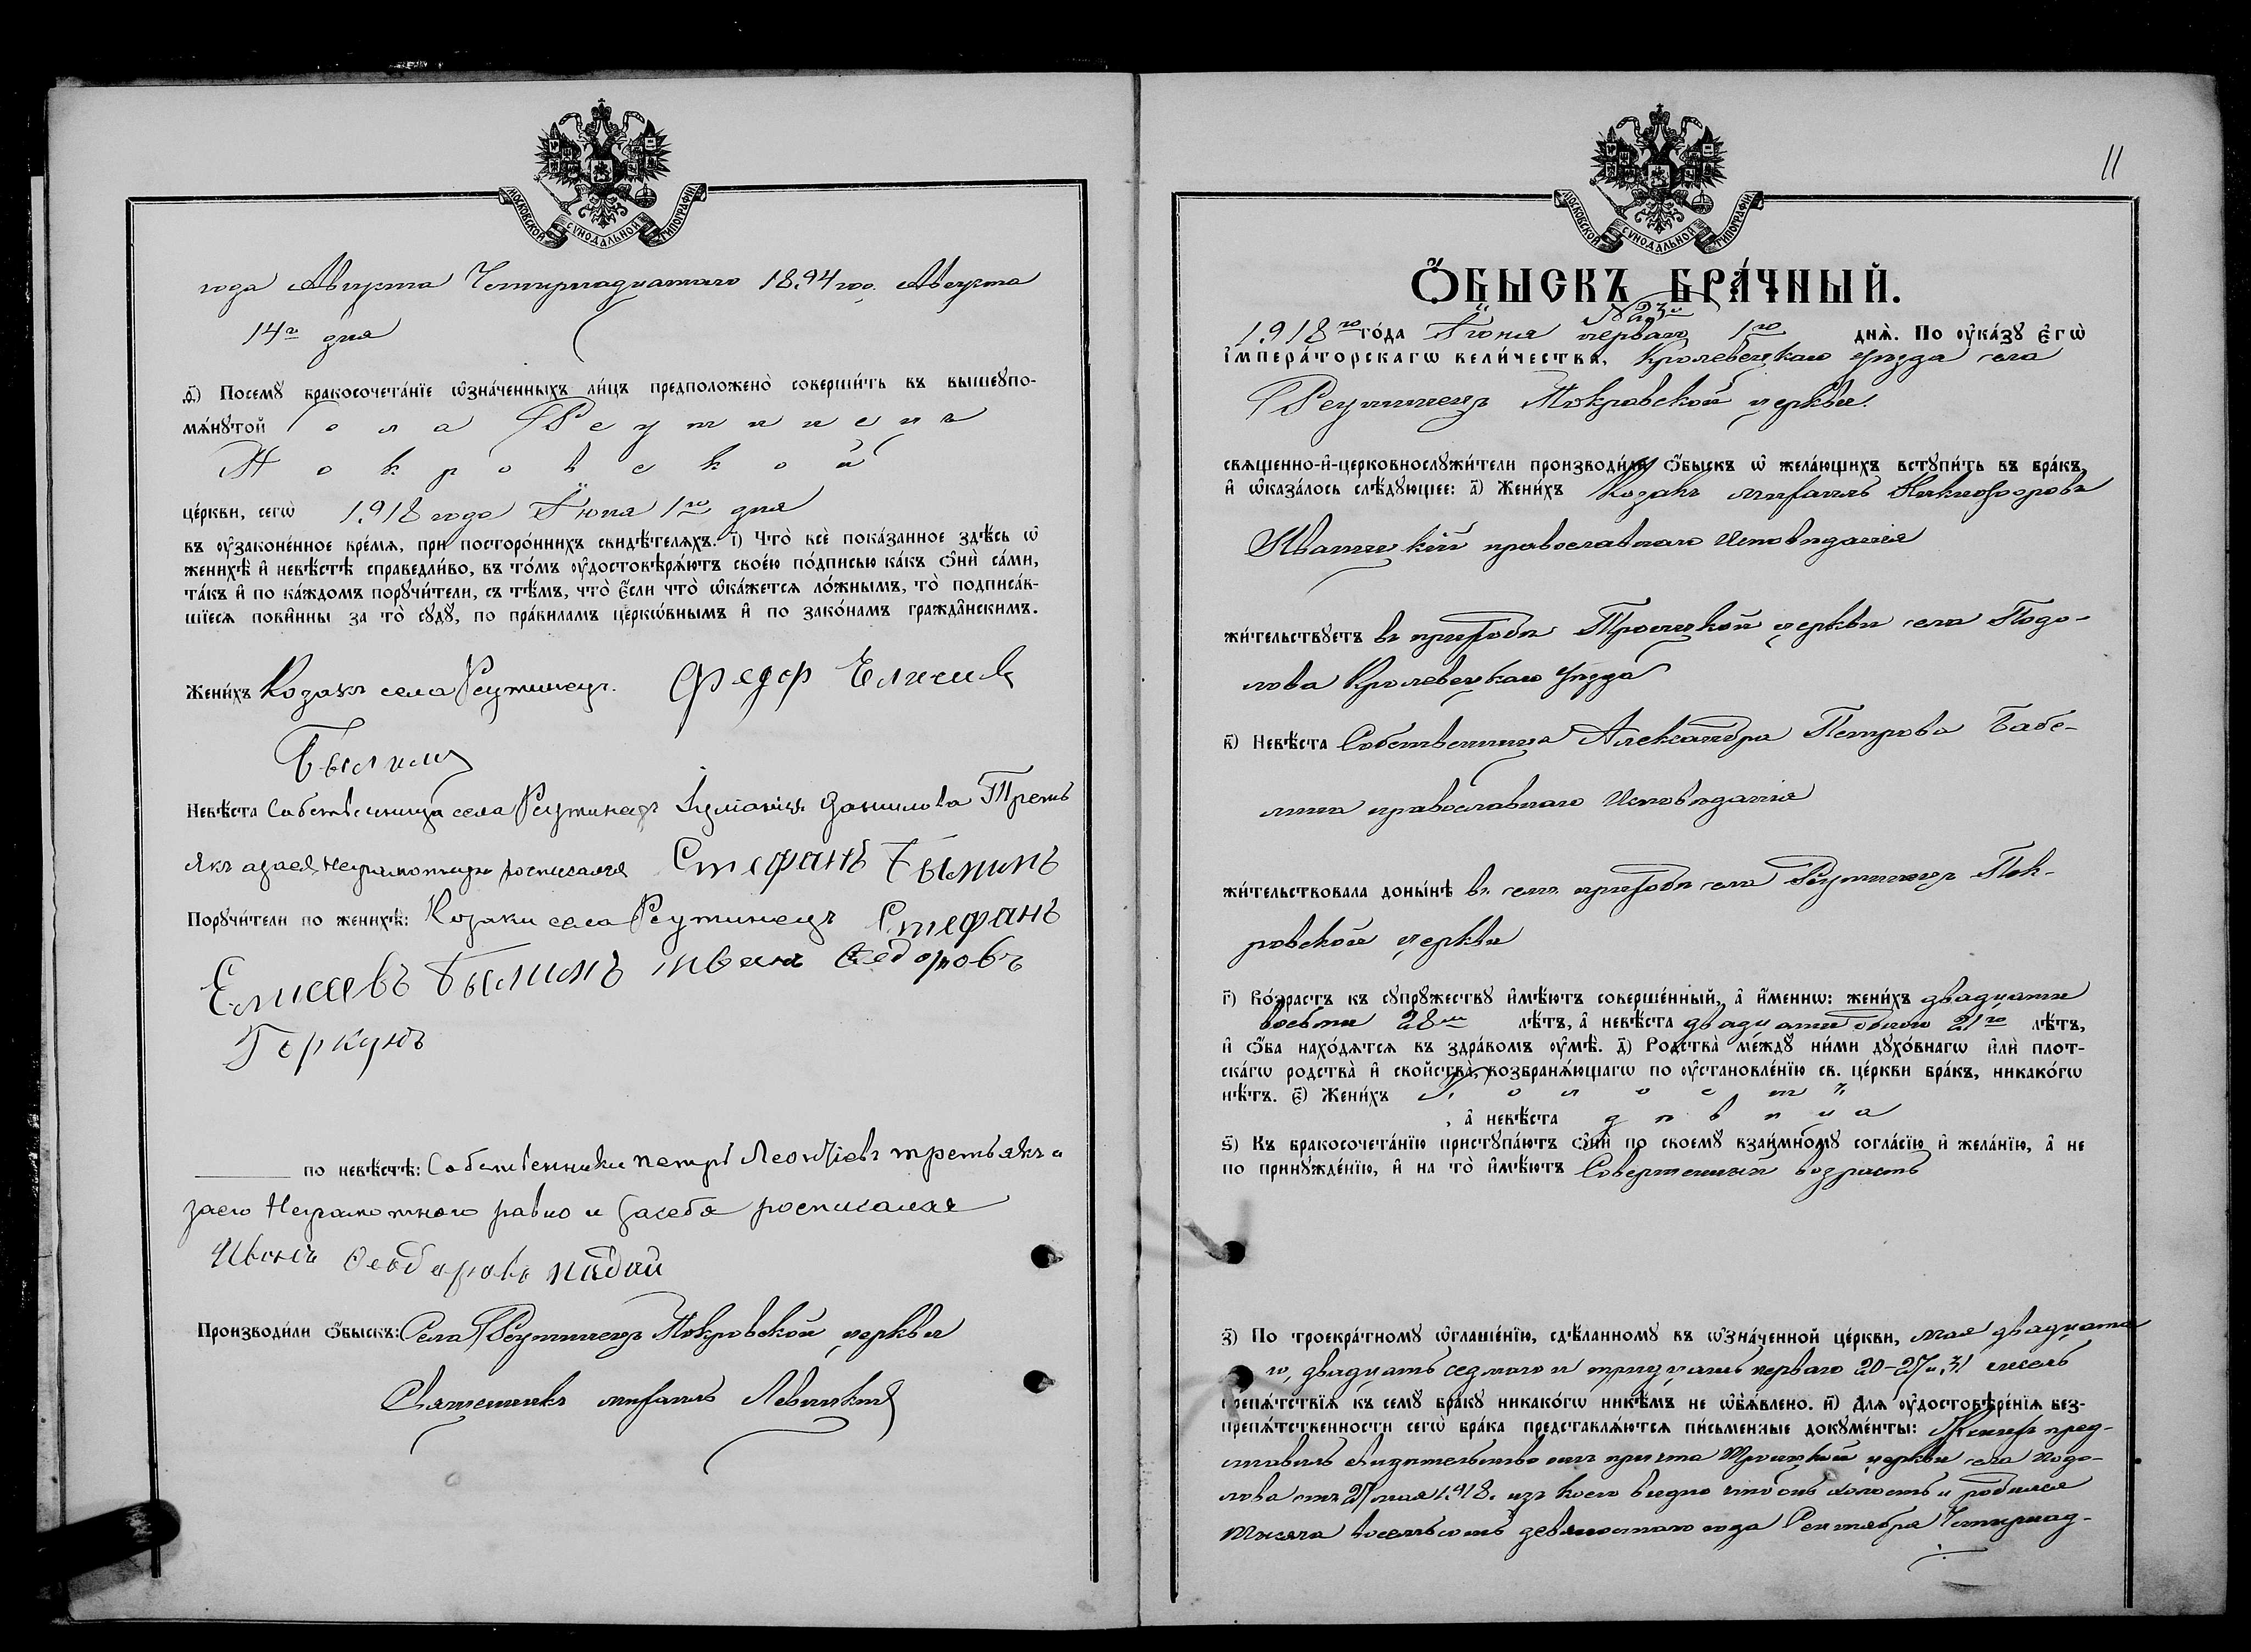 МОСКОВСКОЙ СѴНОДАЛЬНОЙ ТИПОГРАФІИ
года Августа Четырнадцатаго 18.94 го. Августа
14го дня
д҃) Посемꙋ бракосочета́нїе ѡ҆зна́ченныхъ ли́цъ предположено̀ соверши́ть въ вышеꙋпо-
мѧ́нꙋтой села Реутинецъ
Покровской
це́ркви, сегѡ̀ 1.918 года Іюня 1го дня
въ ѹ҆законе́нное вре́мѧ, при посторо́ннихъ свидѣ́телѧхъ. і҃) Что̀ всѐ пока́занное здѣ́сь ѡ҆
женихѣ̀ и҆ невѣ́стѣ справедли́во, въ то́мъ ѹ҆достовѣрѧ́ютъ свое́ю по́дписью ка́къ ѻ҆нѝ са́ми,
та́къ и҆ по ка́ждомъ порꙋчи́тели, съ тѣ́мъ, что̀ є҆́сли что̀ ѡ҆ка́жетсѧ ло́жнымъ, то̀ подписа́в-
шїесѧ пови́нны за то̀ сꙋдꙋ̀, по пра́виламъ церкѡ́внымъ и҆ по зако́намъ гражда́нскимъ.
Жени́хъ Козакъ села Реутинецъ. Федор Елисеив
Былим
Невѣ́ста Собственница села Реутинецъ Іуліанія Данилова Треть
якъ азаея неграмотную росписался Стефанъ Былимъ
Порꙋчи́тели по женихѣ̀: Козаки села Реутинецъ Стефанъ
Елисеевъ Былимъ Иванъ Федоровъ
Геркунъ
по невѣ́стѣ: Собственники Петръ Леонтіевъ третьякъ и
заего Неграмотного равно и засебя росписался
Иванъ Феодоровъ
Производи́ли ѻ҆́быскъ: Села Реутинецъ Покровской церкви
Священникъ Михаилъ Левицкій
11
МОСКОВСКОЙ СѴНОДАЛЬНОЙ ТИПОГРАФІИ
Ѻ҆́БЫСКЪ БРА́ЧНЫЙ.
№ 23й
1.918го го́да Іюня перваго 1го днѧ̀. По ѹ҆ка́зꙋ є҆гѡ̀
і҆мпера́торскагѡ вели́чества, Кролевецкаго уѣзда села
Реутинецъ Покровской церкви.
свѧще́нно-и҆-церковнослꙋжи́тели производи́ли ѻ҆́быскъ ѡ҆ жела́ющихъ встꙋпи́ть въ бра́къ,
и҆ ѡ҆каза́лось слѣ́дꙋющее: а҃) Жени́хъ Козакъ Михаилъ Никифоровъ
Квятицкій православнаго Исповѣданія
жи́тельствꙋетъ въ приходѣ Троицкой церкви села Подо-
лова Кролевецкаго уѣзда
в҃) Невѣ́ста Собственница Александра Петрова Бабе-
лина православнаго Исповѣданія
жи́тельствовала доны́нѣ въ семъ приходѣ села Реутинецъ Пок-
ровской церкви
г҃) Во́зрастъ къ сꙋпрꙋ́жествꙋ и҆мѣ́ютъ соверше́нный, а҆ и҆́меннѡ: жени́хъ двадцати
восьми 28ми лѣ́тъ, а҆ невѣ́ста двадцати одного 21го лѣ́тъ,
и҆ ѻ҆́ба нахо́дѧтсѧ въ здра́вомъ ѹ҆мѣ̀. д҃) Родства̀ ме́ждꙋ ни́ми дꙋхо́внагѡ и҆лѝ плот-
ска́гѡ родства̀ и҆ сво́йства̀, возбранѧ́ющагѡ по ѹ҆становле́нїю св. це́ркви бра́къ, никако́гѡ
нѣ́тъ. є҃) Жени́хъ холостъ
, а҆ невѣ́ста дѣвица
ѕ҃) Къ бракосочета́нїю пристꙋпа́ютъ ѻ҆нѝ по своемꙋ̀ взаи́мномꙋ согла́сїю и҆ жела́нїю, а҆ не
по принꙋжде́нїю, и҆ на то̀ и҆мѣ́ютъ Совершенный возрастъ
з҃) По троекра́тномꙋ ѡ҆глаше́нїю, сдѣ́ланномꙋ въ ѡ҆зна́ченной це́ркви, мая двадцата
го, двадцать седмаго и тридцать перваго 20-27 и 31 чиселъ
препѧ́тствїѧ къ семꙋ̀ бра́кꙋ никако́гѡ никѣ́мъ не ѡ҆бъѧ́влено. и҃) Длѧ ѹ҆достовѣре́нїѧ без-
препѧ́тственности сегѡ̀ бра́ка представлѧ́ютсѧ пи́сьменные докꙋме́нты: Женихъ пред-
ставилъ свидѣтельство отъ причта Троицкой церкви села Подо-
лова отъ 27 мая 1.918. изъ коего видно что онъ холостъ и родился
Тысяча восемьсотъ девяностаго года Сентября Четырнад-